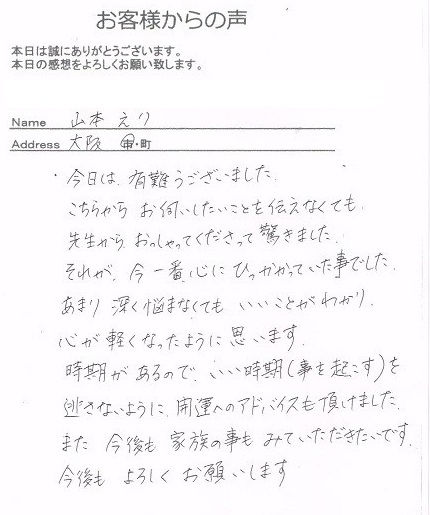 お客様からの声
本日は誠にありがとうございます。
本日の感想をよろしくお願い致します。
Name 山本 えり
Address 大阪 市・町
今日は、有難うございました。
こちらから お伺いしたいことを伝えなくても、
先生から おっしゃってくださって驚きました。
それが、今一番、心に ひっかかっていた事でした。
あまり 深く悩まなくても いいことがわかり、
心が 軽くなったように 思います。
時期が あるので、いい時期(事を起こす)を
逃さないように、開運へのアドバイスも頂けました。
また 今後も 家族の事も みていただきたいです。
今後も よろしく お願いします